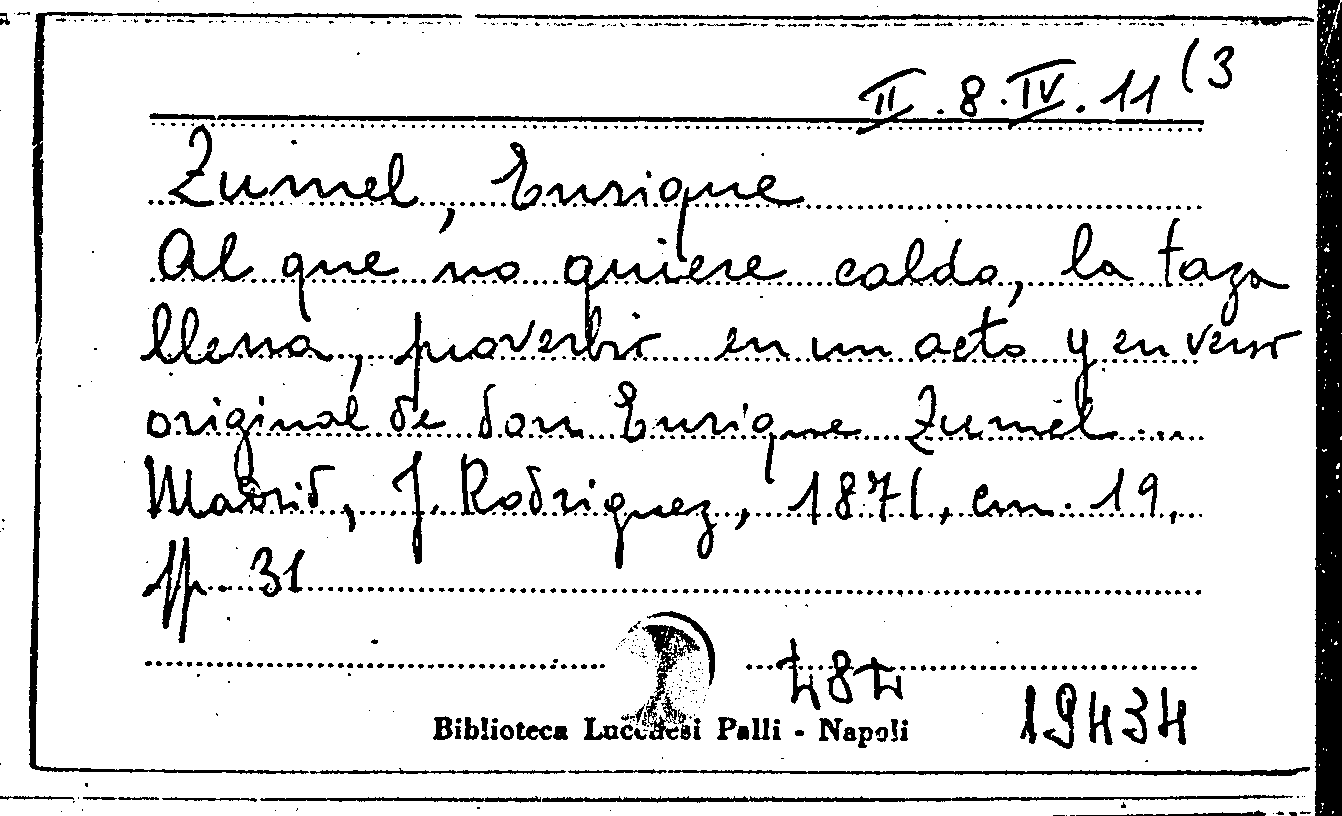 II.8.IV.11 (3
Zumel, Enrique
Al que no quiere caldo, la taza
llena, proverbio en un acto y en verso
original de don Enrique Zumel...
Madrid, J. Rodriguez, 1871, cm. 19,
pp. 31
484
19434
Biblioteca Lucchesi Palli - Napoli